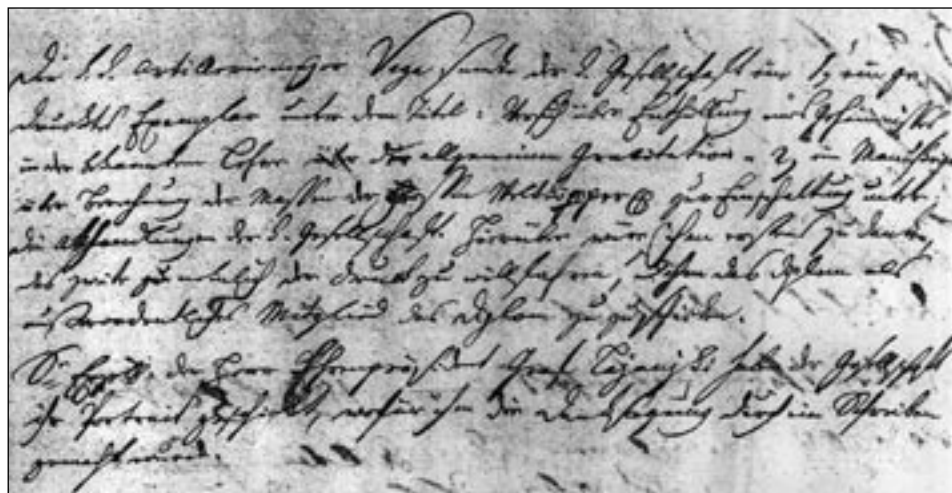 Der k. k. Artilleriemajor Vega sandte der k. Gesellschaft ein 1) ein ge-
drucktes Exemplar unter dem Titel: Versuch über Enthüllung eines Geheimnisses
in der bekannten Lehre über der allgemeinen Gravitation = 2) ein Manuskript
über Berechnung der Massen der grossen Weltkörper zur Einschaltung unter
die Abhandlungen der k. Gesellschaft. Hierüber wäre ihm erstens zu danken,
des zweite der Druck zu willfahren, ihm das Diplom als
außerordentliches Mitglied des Diplom zu zuschicken.
Se der Herr Ehrenpräsident Graf habe der Gesellschaft
ihr Portrait geschickt, wofür ihm die Danksagung durch ein Schreiben
gemacht wurde.